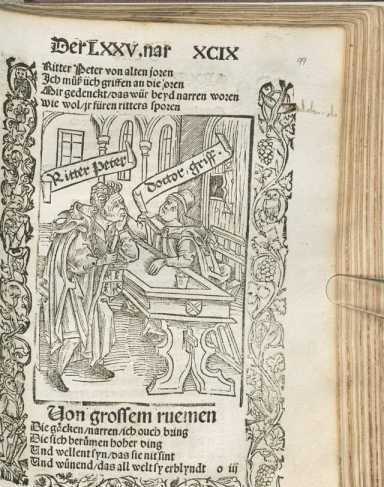 Der LXXV. nar XCIX
99
Ritter Peter von alten joren
Ich můß üch griffen an die joren
Mir gedenckt / das wür beyd narren woren
Wie wol / jr füren ritters sporen
Ritter Peter
doctor. griff.
Von grossem ruemen
Die gäcken / narren / ich ouch bring
Die sich berůmen hoher ding
Und wellent syn / das sie nit sint
Und wůnend / das all welt sy erblyndt o iij